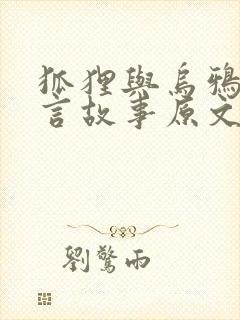 狐狸與烏鴉
言故事原文
劉驚雨